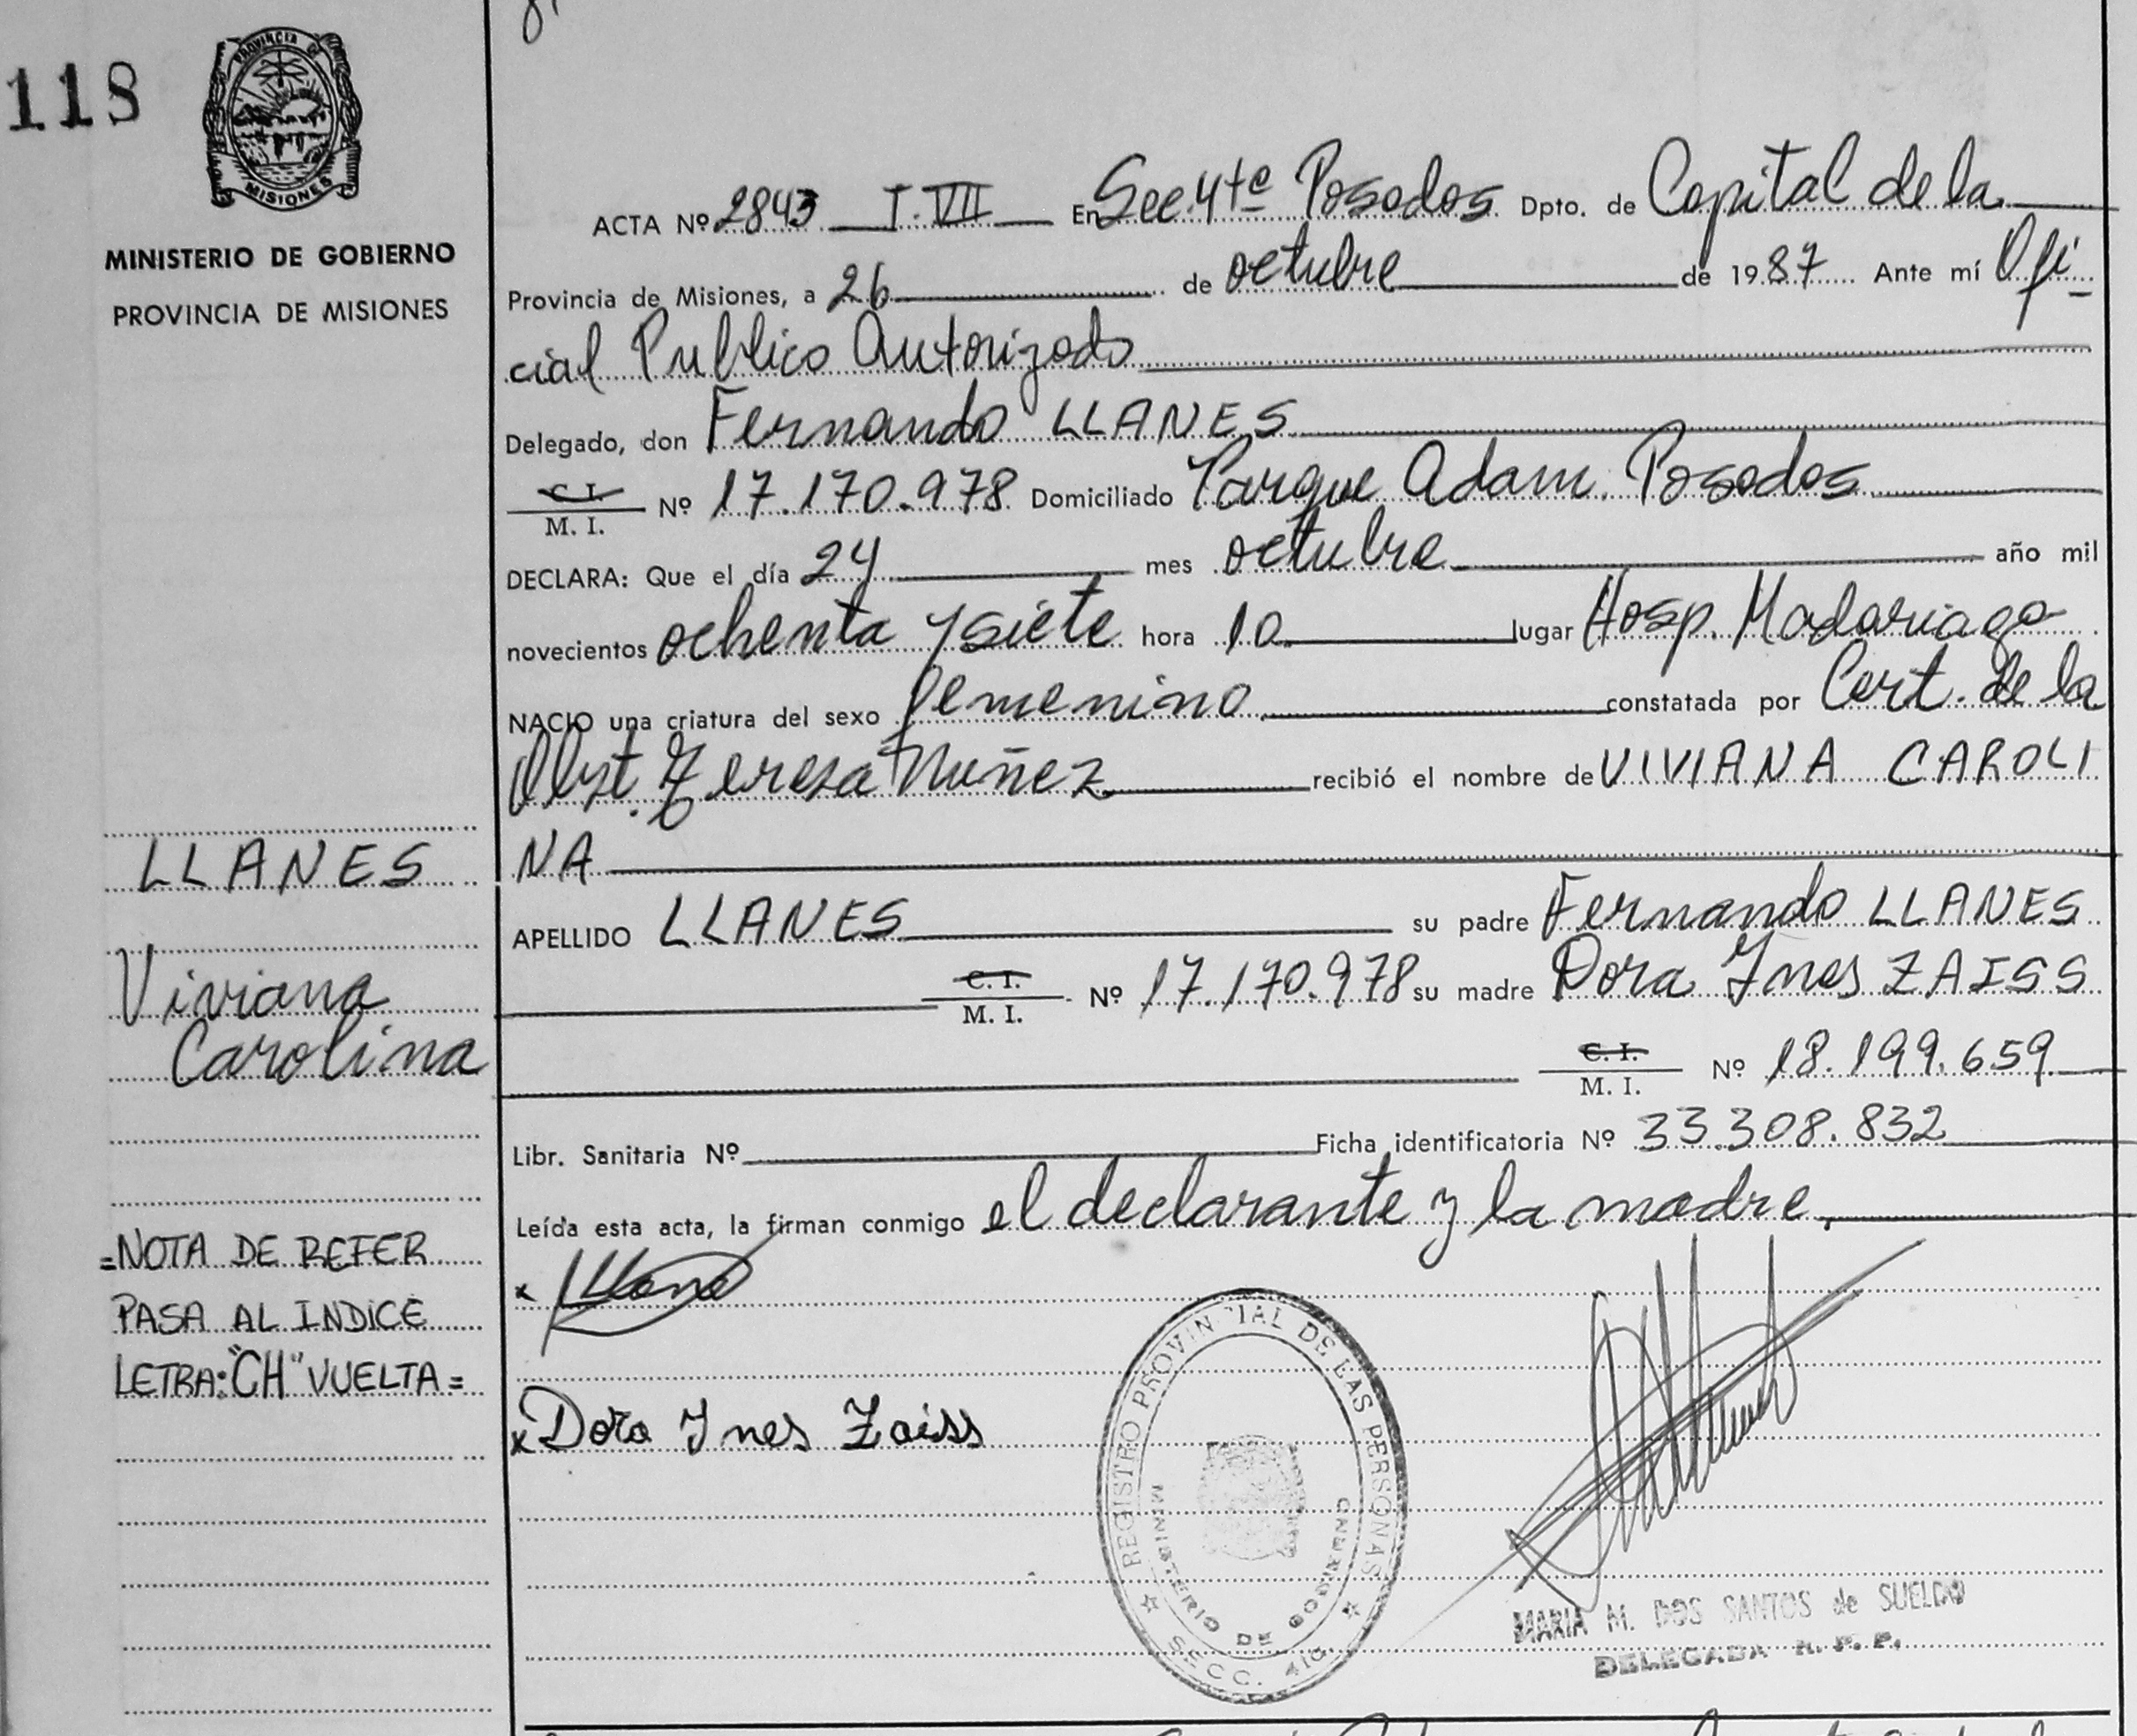 118
PROVINCIA DE
MISIONES
MINISTERIO DE GOBIERNO
PROVINCIA DE MISIONES
ACTA Nº 2843 T. VII En Sec. 4ta Posadas Dpto. de Capital de la
Provincia de Misiones, a 26 de octubre de 1987 Ante mí Ofi-
cial Publico Autorizado
Delegado, don Fernando LLANES
C. I.
M. I. Nº 17.170.978 Domiciliado Parque Adam. Posadas
DECLARA: Que el día 24 mes octubre año mil
novecientos ochenta y siete hora 10 lugar Hosp. Madariaga
NACIO una criatura del sexo femenino constatada por Cert. de la
Obst. Teresa Nuñez recibió el nombre de VIVIANA CAROLI
NA
APELLIDO LLANES su padre Fernando LLANES
C. I.
M. I. Nº 17.170.978 su madre Dora Ines ZAISS
C. I.
M. I. Nº 18.199.659
Libr. Sanitaria Nº Ficha identificatoria Nº 33.308.832
Leída esta acta, la firman conmigo el declarante y la madre.
x
x Dora Ines Zaiss
LLANES
Viviana
Carolina
=NOTA DE REFER
PASA AL INDICE
LETRA: "CH" VUELTA=
REGISTRO PROVINCIAL DE LAS PERSONAS
MINISTERIO DE GOBIERNO
SECC. 4ta.
MARIA M. DOS SANTOS de SUELDO
DELEGADA R. P. P.